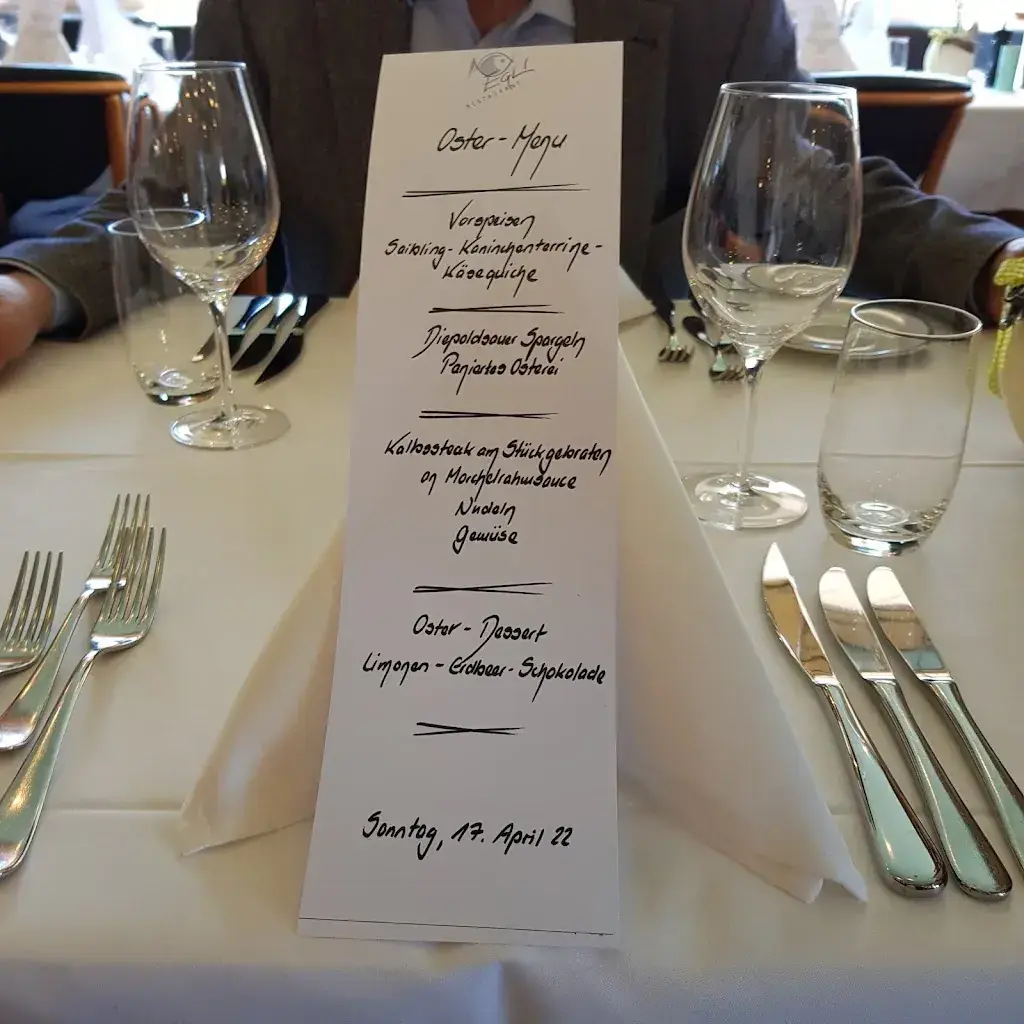 EGLI
RESTAURANT
Oster-Menu
Vorspeisen
Saibling-Kaninchenterrine-
Käsequiche
Diepoldsauer Spargeln
Paniertes Osterei
Kalbssteak am Stück gebraten
an Morchelrahmsauce
Nudeln
Gemüse
Oster-Dessert
Limonen-Erdbeer-Schokolade
Sonntag, 17. April 22